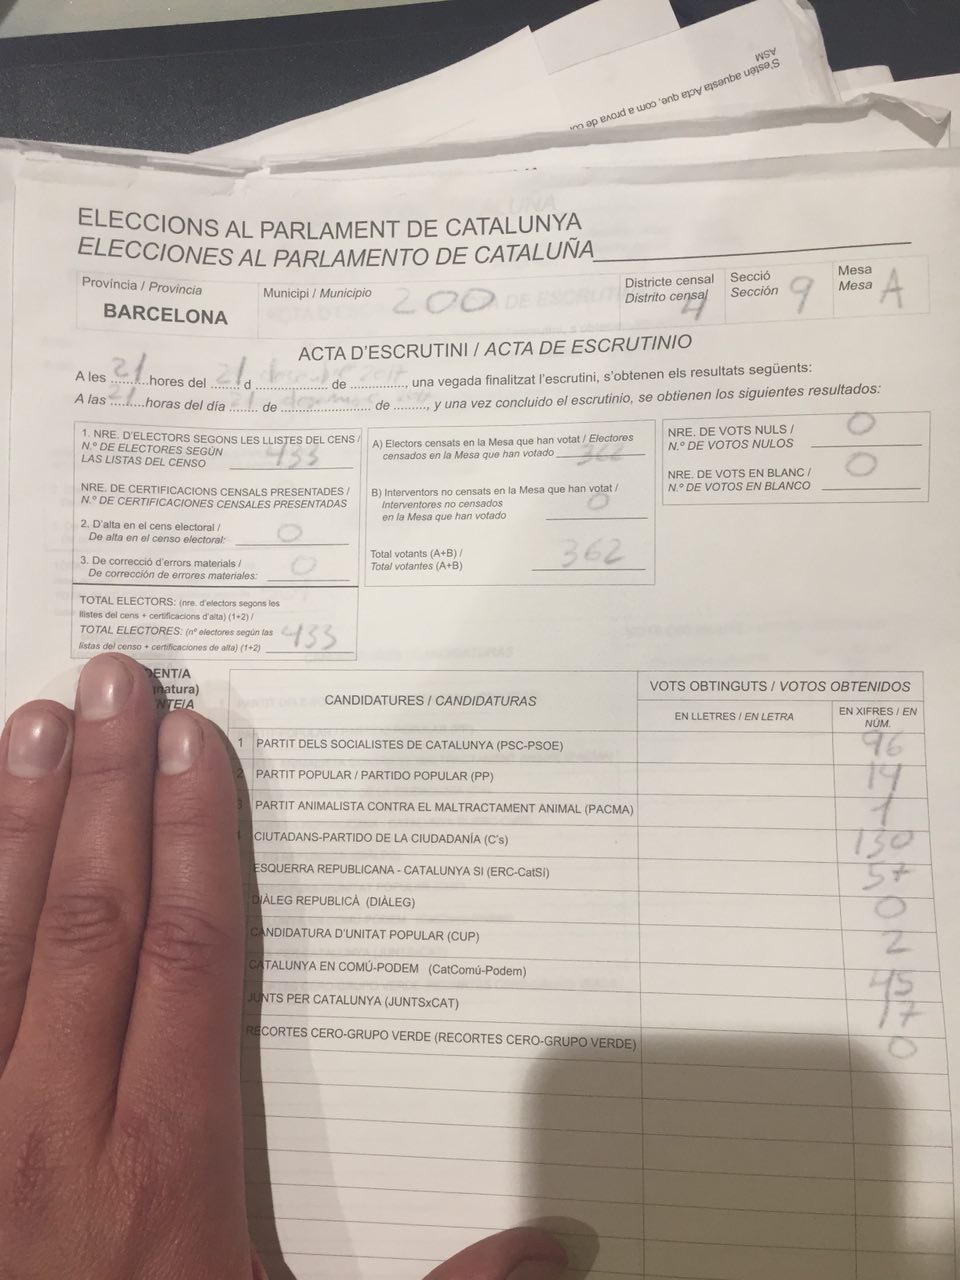 S'estén aquesta Acta que, com a prova de
ASM
ELECCIONS AL PARLAMENT DE CATALUNYA
ELECCIONES AL PARLAMENTO DE CATALUÑA
Província / Provincia
BARCELONA
Municipi / Municipio
200
Districte censal
Distrito censal
4
Secció
Sección
9
Mesa
Mesa
A
ACTA D'ESCRUTINI / ACTA DE ESCRUTINIO
A les 21 hores del 21 d desembre de 2017, una vegada finalitzat l'escrutini, s'obtenen els resultats següents:
A las 21 horas del día 21 de de, y una vez concluido el escrutinio, se obtienen los siguientes resultados:
1. NRE. D'ELECTORS SEGONS LES LLISTES DEL CENS /
N.º DE ELECTORES SEGÚN
LAS LISTAS DEL CENSO 433
NRE. DE CERTIFICACIONS CENSALS PRESENTADES /
N.º DE CERTIFICACIONES CENSALES PRESENTADAS
2. D'alta en el cens electoral /
De alta en el censo electoral: 0
3. De correcció d'errors materials /
De corrección de errores materiales: 0
TOTAL ELECTORS: (nre. d'electors segons les
llistes del cens + certificacions d'alta) (1+2) /
TOTAL ELECTORES: (nº electores según las
listas del censo + certificaciones de alta) (1+2) 433
A) Electors censats en la Mesa que han votat / Electores
censados en la Mesa que han votado 362
B) Interventors no censats en la Mesa que han votat /
Interventores no censados
en la Mesa que han votado 0
Total votants (A+B) /
Total votantes (A+B) 362
NRE. DE VOTS NULS /
N.º DE VOTOS NULOS 0
NRE. DE VOTS EN BLANC /
N.º DE VOTOS EN BLANCO 0
CANDIDATURES / CANDIDATURAS
VOTS OBTINGUTS / VOTOS OBTENIDOS
EN LLETRES / EN LETRA
EN XIFRES / EN
NÚM.
1 PARTIT DELS SOCIALISTES DE CATALUNYA (PSC-PSOE) 96
2 PARTIT POPULAR / PARTIDO POPULAR (PP) 14
3 PARTIT ANIMALISTA CONTRA EL MALTRACTAMENT ANIMAL (PACMA) 1
4 CIUTADANS-PARTIDO DE LA CIUDADANÍA (C's) 130
ESQUERRA REPUBLICANA - CATALUNYA SI (ERC-CatSí) 57
DIÀLEG REPUBLICÀ (DIÀLEG) 0
CANDIDATURA D'UNITAT POPULAR (CUP) 2
CATALUNYA EN COMÚ-PODEM (CatComú-Podem) 45
JUNTS PER CATALUNYA (JUNTSxCAT) 17
RECORTES CERO-GRUPO VERDE (RECORTES CERO-GRUPO VERDE) 0